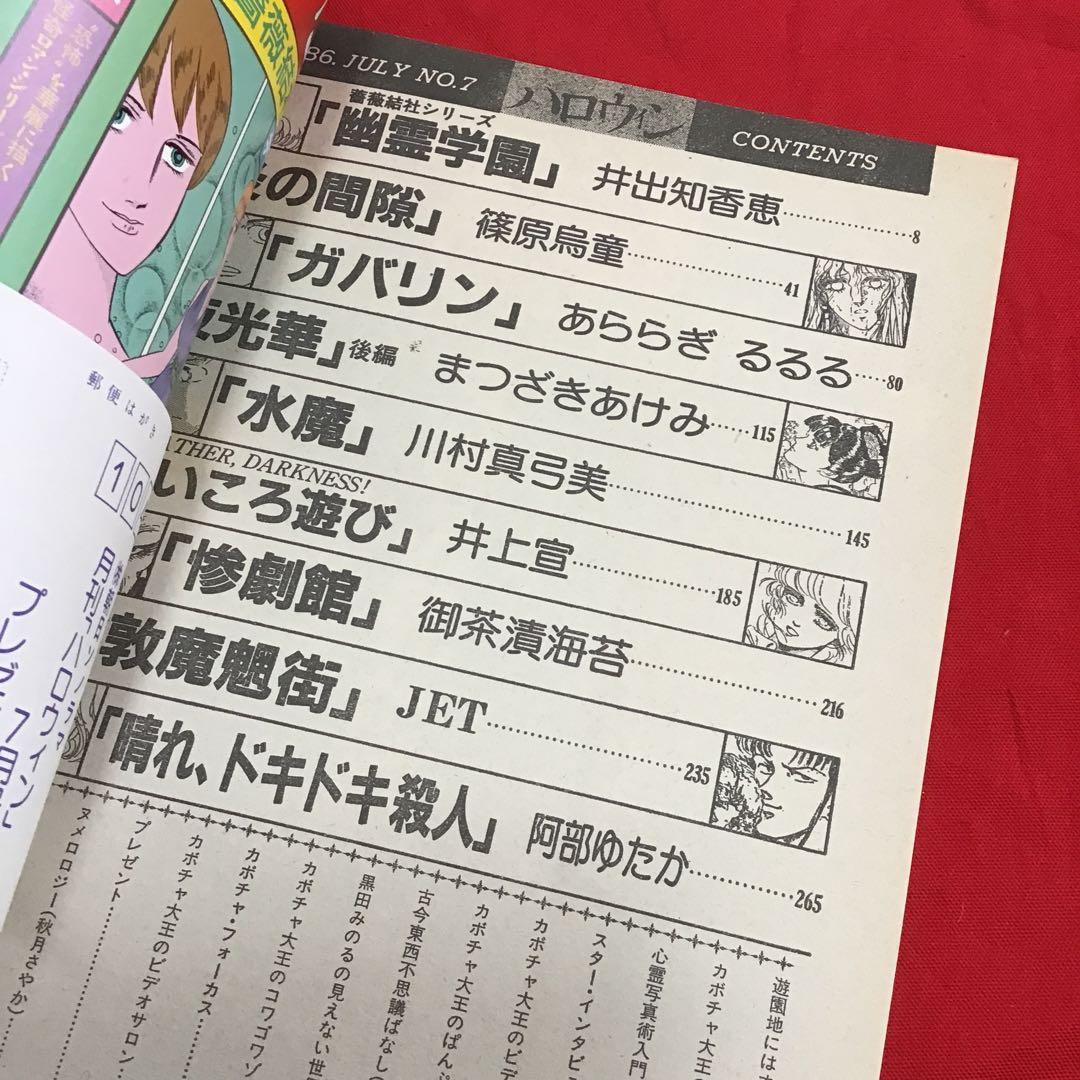 86. JULY NO.7
ハロウィン
CONTENTS
薔薇結社シリーズ
「幽霊学園」 井出知香恵 8
の間隙」 篠原烏童 41
「ガバリン」 あららぎ るるる 80
光華」後編 まつざきあけみ 115
「水魔」 川村真弓美 145
THER, DARKNESS!
いころ遊び」 井上宣 185
「惨劇館」 御茶漬海苔 216
敦魔魍街」 JET 235
「晴れ、ドキドキ殺人」 阿部ゆたか 265
遊園地には
カボチャ大王の
心霊写真術入門
スター・インタビ
カボチャ大王のビデ
カボチャ大王のぱん
古今東西不思議ばなし(
黒田みのるの見えない世
カボチャ大王のコワゴワゾ
カボチャ・フォーカス
カボチャ大王のビデオサロン
プレゼント
ヌメロロジー(秋月さやか)
"恐怖"を華麗に描く
郵便はがき
10
月刊ハロウィン
7月
プレゼ